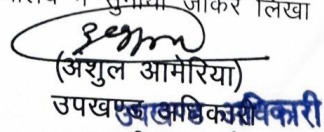 सुनाया जाकर लिखा
(अंशुल आमेरिया)
उपखण्ड अधिकारी
उपखण्ड अधिकारी